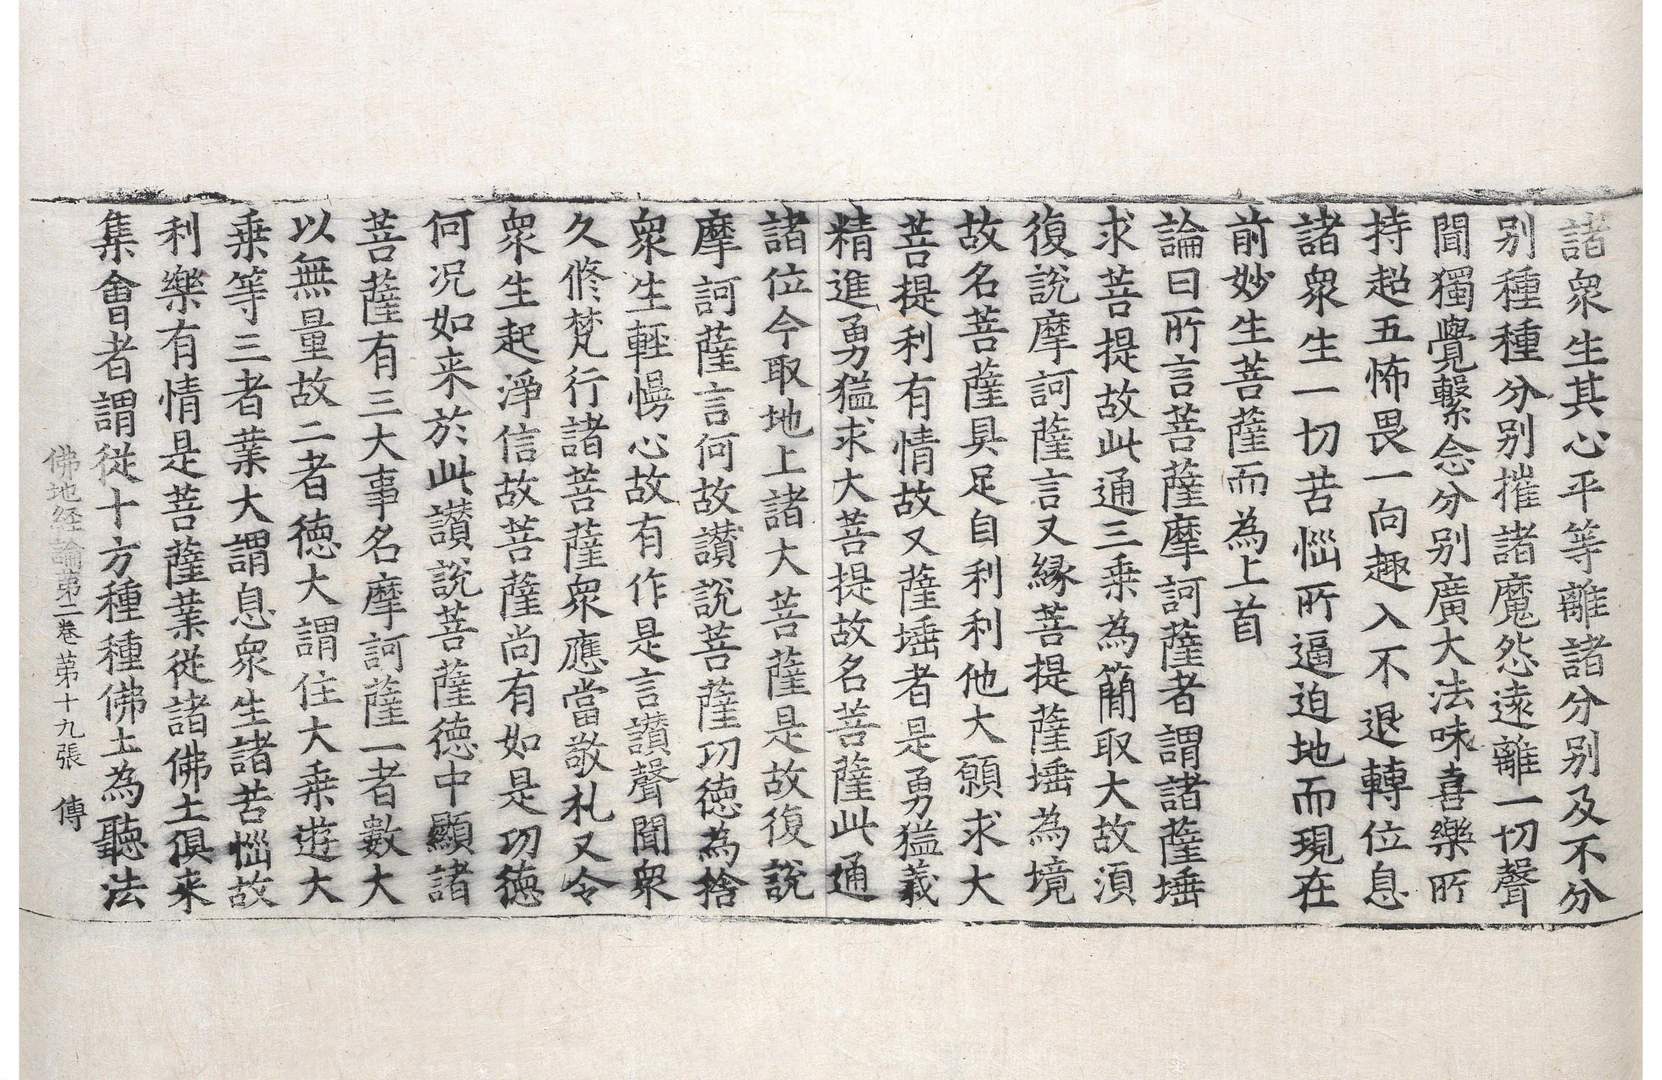 諸衆生其心平等離諸分别及不分
别種種分别摧諸魔怨遠離一切聲
聞獨覺繫念分别廣大法味喜樂所
持超五怖畏一向趣入不退轉位息
諸衆生一切苦惱所逼迫地而現在
前妙生菩薩而為上首
論曰所言菩薩摩訶薩者謂諸薩埵
求菩提故此通三乗為簡取大故湏
復說摩訶薩言又縁菩提薩埵為境
故名菩薩具足自利利他大願求大
菩提利有情故又薩埵者是勇猛義
精進勇猛求大菩提故名菩薩此通
諸位今取地上諸大菩薩是故復說
摩訶薩言何故讃說菩薩功徳為捨
衆生輕慢心故有作是言讃聲聞衆
久修梵行諸菩薩衆應當敬礼又令
衆生起淨信故菩薩尚有如是功徳
何況如来於此讃說菩薩徳中顯諸
菩薩有三大事名摩訶薩一者數大
以無量故二者徳大謂住大乗遊大
乗等三者業大謂息衆生諸苦惱故
利樂有情是菩薩業從諸佛土俱来
集會者謂從十方種種佛土為聽法
佛地経論第二卷 第十九張 傳